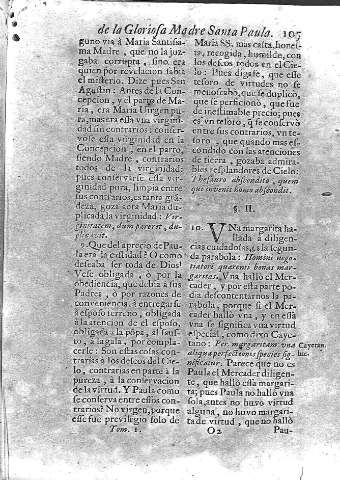 de la Gloriosa Madre Santa Paula. 105
guno via á Maria Santissi-
ma Madre, que no la juz-
gaba corrupta, sino era
quien por revelacion sabia
el misterio. Dize pues San
Agustin: Antes de la Con-
cepcion, y el parto de Ma-
ria, era Maria Virgen pu-
ra, mas era essa vna virgini-
dad sin contrarios: conser-
vose essa virginidad en la
Concepcion, en el parto,
siendo Madre, contrarios
todos de la virginidad:
pues conservarse essa vir-
ginidad pura, limpia entre
sus contrarios, es tanta gran-
deza, goza sera Maria du-
plicada la virginidad:
dum pareret,
9. Que del aprecio de Pau-
la era la castidad? O como
deseaba ser toda de Dios!
Vese obligada, ò por la
obediencia, que debia à sus
Padres, ò por razones de
conveniencia, à entregarse
á esposo terreno, obligada
à la atencion de el esposo,
obligada à la pompa, al faus-
to, à la gala, por compla-
cerle: Son estas cosas con-
trarias à los deseos del Cie-
lo, contrarias en parte à la
pureza, à la conservacion
de la virtud. Y Paula como
se conserva entre essos con-
trarios? No virgen, porque
esse fue privilegio solo de
Tom. 1.
Maria SS. mas casta, hones-
ta, recogida, humilde, con
los deseos todos en el Cie-
lo: Pues digase, que esse
tesoro de virtudes no se
menoscabó, que se duplicó,
que se perficionò, que fue
de inestimable precio; pues
es vn tesoro, q̃ se conservò
entre sus contrarios, vn te-
soro, que quando mas es-
condido con las atenciones
de tierra, gozaba admira-
bles resplandores de Cielo:
Thesauro abscondito, quem
qui invenit homo abscondit.
§. II.
10. VNa margarita ha-
llada à diligen-
cias cuidadosas, es la segunda
parabola: Homini nego-
tiatori quærenti bonas mar-
garitas. Vna halló el Mer-
cader, y por esta parte po-
dia descontentarnos la pa-
rabola, porque si el Mer-
cader halló vna, y en essa
vna se significa vna virtud
especial, como dixo Caye-
tano: Per margaritam vna Cayetan.
aliqua perfectionis species sig- hic.
nificatur. Parece que no es
Paula el Mercader diligen-
te, que halló essa margari-
ta; pues Paula no halló vna
sola, antes no huvo virtud
alguna, no huvo margari-
ta de virtud, que no halló
O2 Pau-